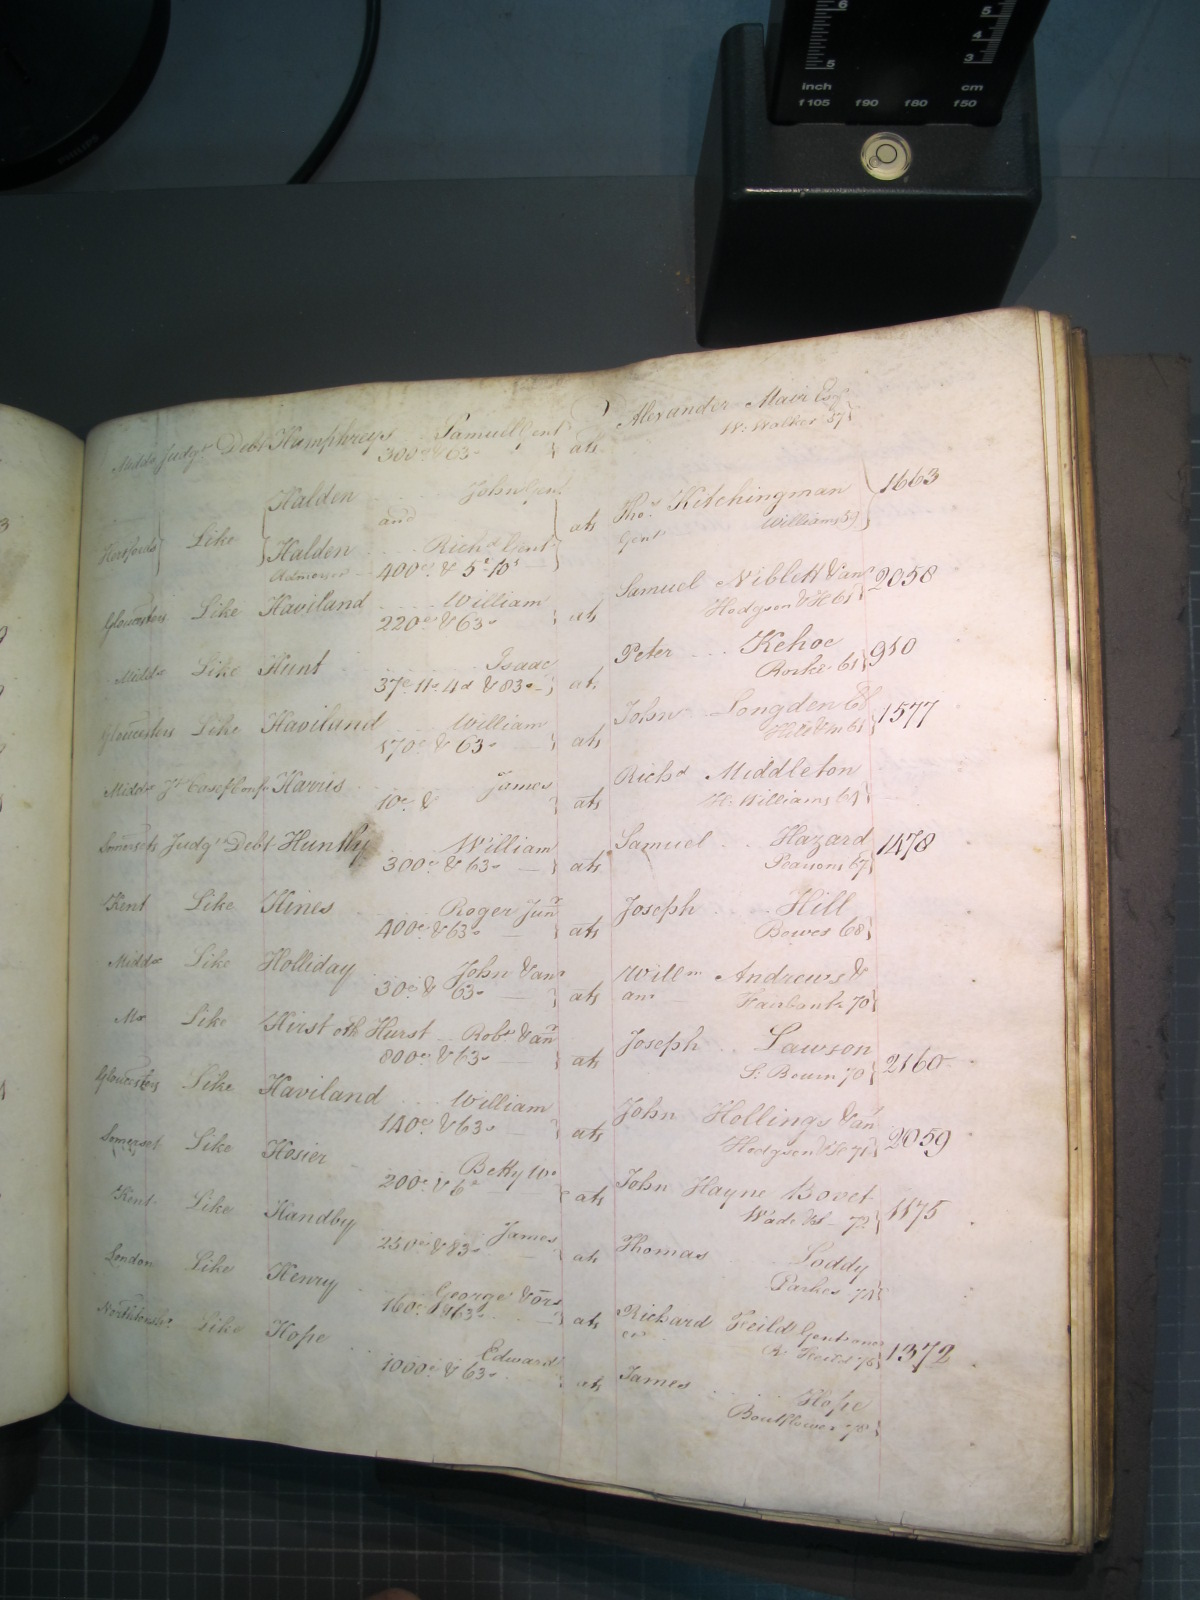 6
5
5
4
3
inch cm
f105 f90 f80 f50
PHILIPS
Middx Judgt Debt Humphreys Samuel Gent ats Alexander Mair Esqr
300 & 63s W. Walker 57
Halden John Gent
and
Hertfords Like ats Thos. Kitchingman 1663
Halden Richd Gent Gent Williams 59
400 & 5£ 10s
Glocesters Like Haviland William ats Samuel Niblett & an 2058
220 & 63s Hodgson & 61
Middx Like Hunt Isaac ats Peter Kehoe 910
37 11s 4d & 83s Rorke 61
Glocesters Like Haviland William ats John Longden 1577
170 & 63s 61
Middx Harris James ats Richd Middleton
10 & H. Williams 61
Somersets Judgt Debt Huntly William ats Samuel Hazard 1478
300 & 63s Pearsons 67
Kent Like Hines Roger Junr ats Joseph Hill
400 & 63s Bowes 68
Middx Like Holliday John & an ats Willm Andrews &
30 & 63s an Fairbank 70
Mx Like Hirst oth Hurst Robt & an ats Joseph Lawson 2160
800 & 63s S. Bourn 70
Glocesters Like Haviland William ats John Hollings & an 2059
140 & 63s Hodgson 71
Somerset Like Hosier Betty Wo ats John Hayne Bovet 1175
200 & Wade 72
Kent Like Handby James ats Thomas Loddy
250 & 83s Parkes 74
London Like Henry George & ors ats Richard Feild Gent 1372
160 & 63s
Like Hope Edward ats James Hope
1000 & 63s Boutflower 78